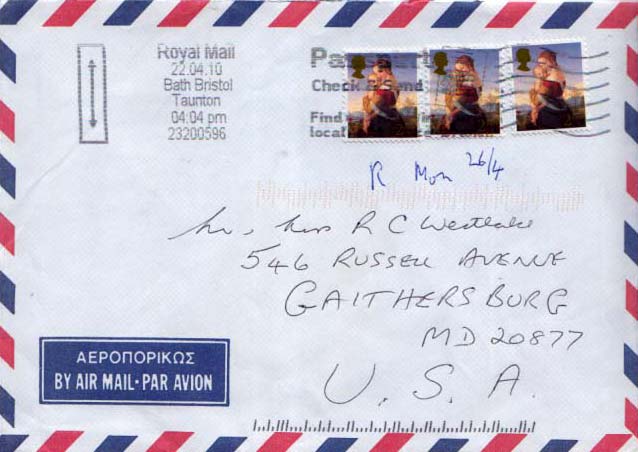 Royal Mail
22.04.10
Bath Bristol
Taunton
04:04 pm
23200596
Check
Find
R Mon 26/4
Mr, Mrs R C Westlake
546 RUSSELL AVENUE
GAITHERSBURG
MD 20877
U.S.A.
ΑΕΡΟΠΟΡΙΚΩΣ
BY AIR MAIL·PAR AVION